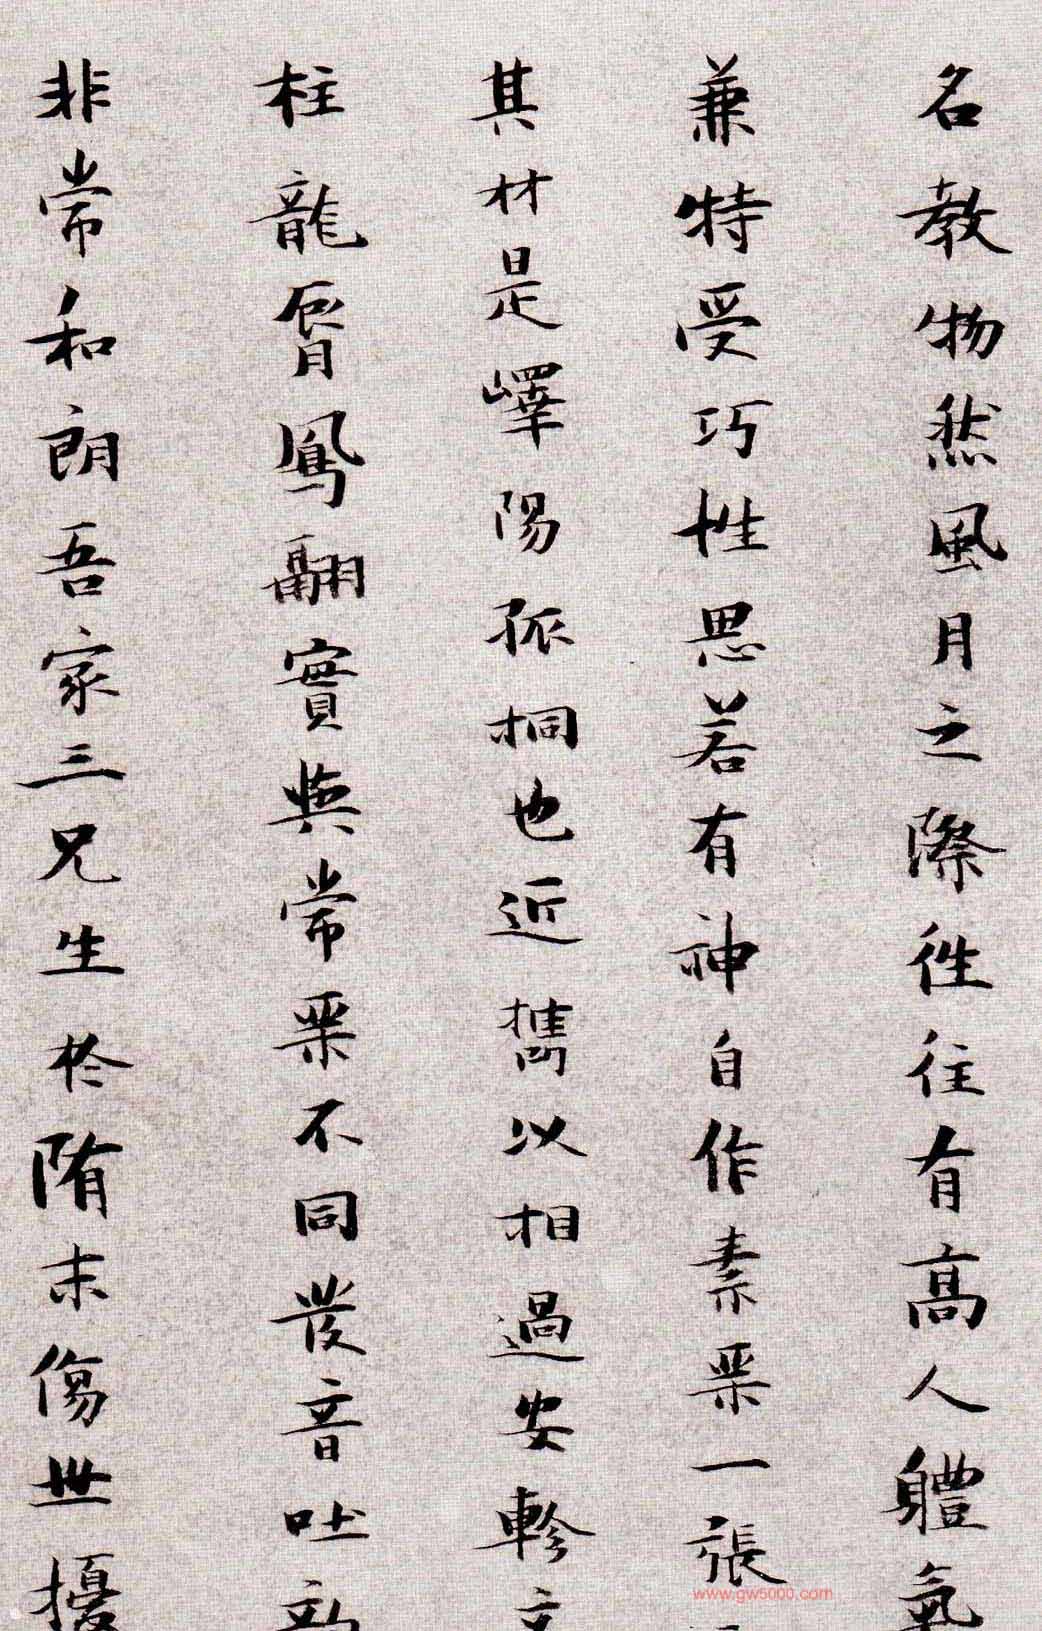 名教物然風月之際徃往有高人體氣
兼特受巧性思若有神自作素琹一張
其材是嶧陽孤桐也近攜以相過安軫
柱龍脣鳳翮實與常琹不同發音吐
非常和朗吾家三兄生於隋末傷世擾
www.gw5000.com